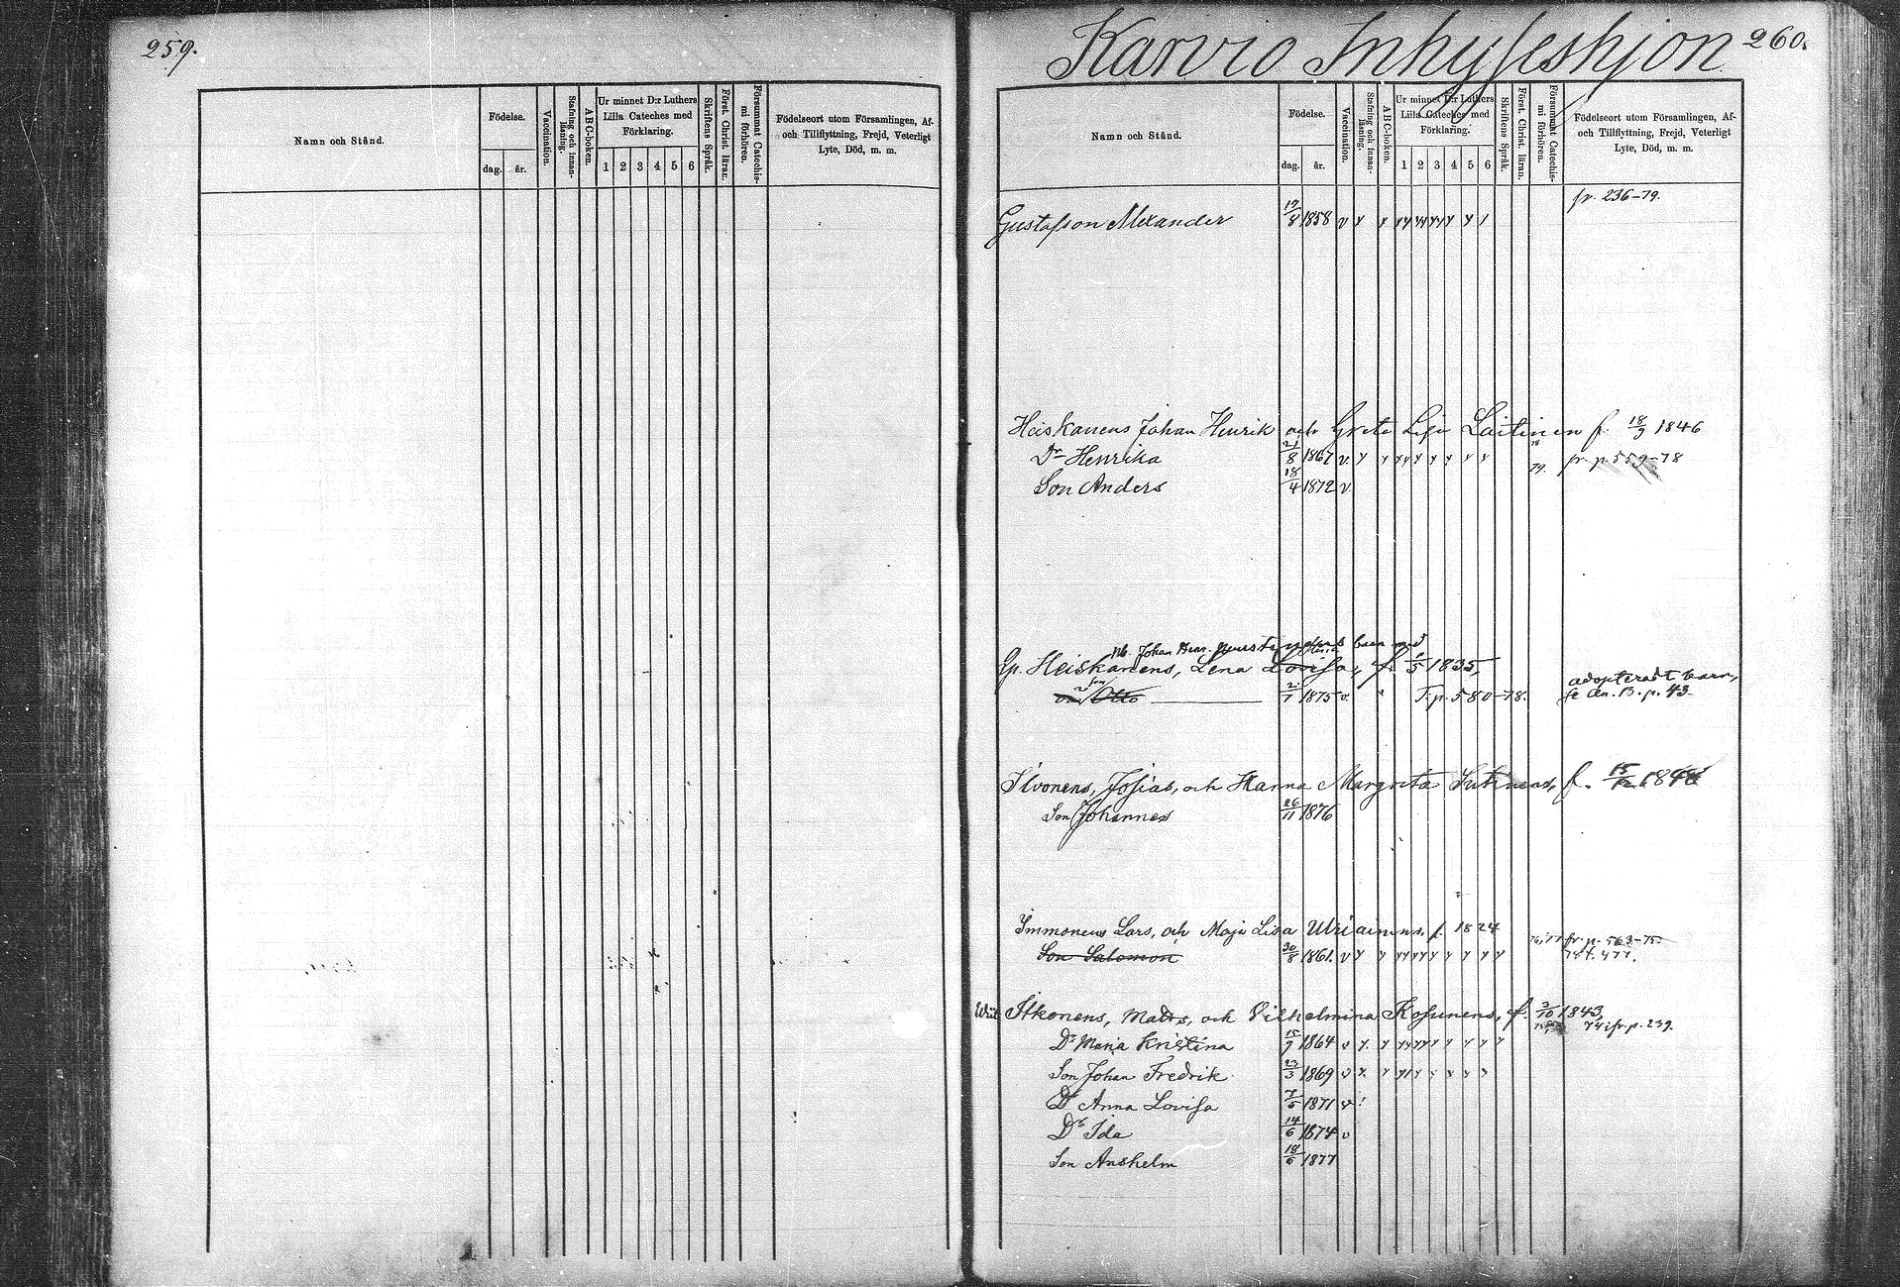 259.
Namn och Stånd.
Födelse.
dag.
år.
Vaccination.
Stafning och innan-
läsning.
ABC-boken.
Ur minnet D:r Luthers
Lilla Cateches med
Förklaring.
1 2 3 4 5 6
Skriftens Språk.
Först. Christ. läran.
Försummat Catechis-
mi förhören.
Födelseort utom Församlingen, Af-
och Tillflyttning, Frejd, Veterligt
Lyte, Död, m. m.
Karvio Inhyseshjon
260.
Namn och Stånd.
Födelse.
dag.
år.
Vaccination.
Stafning och innan-
läsning.
ABC-boken.
Ur minnet D:r Luthers
Lilla Cateches med
Förklaring.
1 2 3 4 5 6
Skriftens Språk.
Först. Christ. läran.
Försummat Catechis-
mi förhören.
Födelseort utom Församlingen, Af-
och Tillflyttning, Frejd, Veterligt
Lyte, Död, m. m.
fr. 236-79.
Gustafson Alexander 19/8 1858 v
Heiskanens Johan Henrik och Greta Lisa Laitinen f. 18/9 1846
Dr Henrika 21/8 1867 v fr. p. 559-78
Son Anders 18/4 1872 v
Johan Henr.
Gp. Heiskanens, Lena Lovisa, f. 1/5 1835,
adopteradt barn,
Otto 1875 v. T. p. 580-78. se An. B. p. 43.
Ilvonens, Josias, och Hanna Margreta Sutinens, f. 15/12 184
Son Johannes 26/11 1876
Immonens Lars, och Maja Lisa f. 1824
76, 77 fr. p. 563-75.
Son Salomon 30/8 1861. v 78 t. 477.
Itkonens, Matts, och Vilhelmina Kosunens, f. 3/10 1843,
fr. p. 239.
Dr Maria Kristina 15/9 1864 v
Son Johan Fredrik 23/3 1869 v
Dr Anna Lovisa 7/6 1871 v
Dr Ida 14/6 1874 v
Son Anshelm 18/6 1877